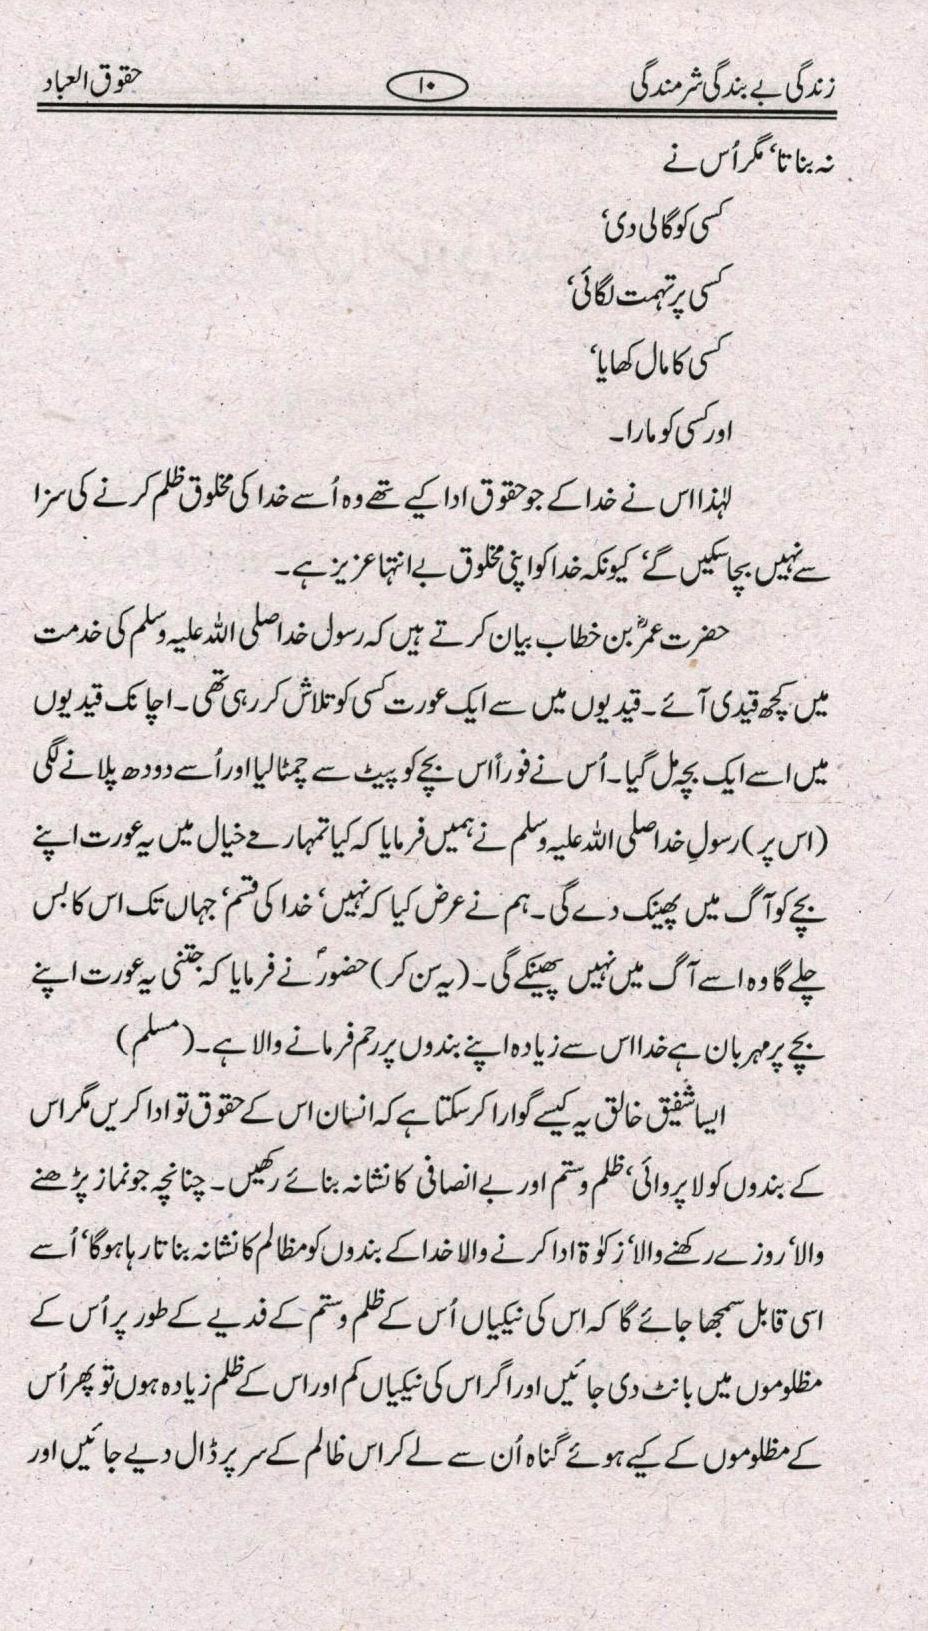 زندگی بے بندگی شرمندگی ۱۰ حقوق العباد
نہ بناتا‘ مگر اُس نے
کسی کو گالی دی‘
کسی پر تہمت لگائی‘
کسی کا مال کھایا‘
اور کسی کو مارا۔
لہٰذا اس نے خدا کے جو حقوق ادا کیے تھے وہ اُسے خدا کی مخلوق ظلم کرنے کی سزا
سے نہیں بچا سکیں گے‘ کیونکہ خدا کو اپنی مخلوق بے انتہا عزیز ہے۔
حضرت عمرؓ بن خطاب بیان کرتے ہیں کہ رسول خدا صلی اللہ علیہ وسلم کی خدمت
میں کچھ قیدی آئے۔ قیدیوں میں سے ایک عورت کسی کو تلاش کر رہی تھی۔ اچانک قیدیوں
میں اسے ایک بچہ مل گیا۔ اُس نے فوراً اس بچے کو پیٹ سے چمٹا لیا اور اُسے دودھ پلانے لگی
(اس پر) رسولِ خدا صلی اللہ علیہ وسلم نے ہمیں فرمایا کہ کیا تمہارے خیال میں یہ عورت اپنے
بچے کو آگ میں پھینک دے گی۔ ہم نے عرض کیا کہ نہیں‘ خدا کی قسم‘ جہاں تک اس کا بس
چلے گا وہ اسے آگ میں نہیں پھینکے گی۔ (یہ سن کر) حضورؐ نے فرمایا کہ جتنی یہ عورت اپنے
بچے پر مہربان ہے خدا اس سے زیادہ اپنے بندوں پر رحم فرمانے والا ہے۔ (مسلم)
ایسا شفیق خالق یہ کیسے گوارا کر سکتا ہے کہ انسان اس کے حقوق تو ادا کریں مگر اس
کے بندوں کو لاپروائی‘ ظلم و ستم اور بے انصافی کا نشانہ بنائے رکھیں۔ چنانچہ جو نماز پڑھنے
والا‘ روزے رکھنے والا‘ زکوٰۃ ادا کرنے والا خدا کے بندوں کو مظالم کا نشانہ بناتا رہا ہوگا‘ اُسے
اسی قابل سمجھا جائے گا کہ اس کی نیکیاں اُس کے ظلم و ستم کے فدیے کے طور پر اُس کے
مظلوموں میں بانٹ دی جائیں اور اگر اس کی نیکیاں کم اور اس کے ظلم زیادہ ہوں تو پھر اُس
کے مظلوموں کے کیے ہوئے گناہ اُن سے لے کر اس ظالم کے سر پر ڈال دیے جائیں اور